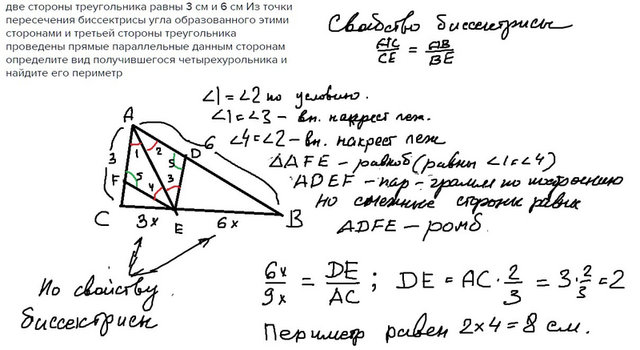 две стороны треугольника равны 3 см и 6 см Из точки
пересечения биссектрисы угла образованного этими
сторонами и третьей стороны треугольника
проведены прямые параллельные данным сторонам
определите вид получившегося четырехурольника и
найдите его периметр
Свойство биссектрисы
AC/CE = AB/BE
∠1 = ∠2 по условию.
∠1 = ∠3 – вн. накрест леж.
∠4 = ∠2 – вн. накрест леж
△AFE – равноб (равны ∠1 = ∠4)
ADEF – пар-грамм по построению
но смежные стороны равны
ADFE – ромб.
A
6
1 2
D
3
5
F
5
3
4
C
3x
E
6x
B
По свойству
биссектрисы
6x/9x = DE/AC ; DE = AC · 2/3 = 3 · 2/3 = 2
Периметр равен 2×4 = 8 см.